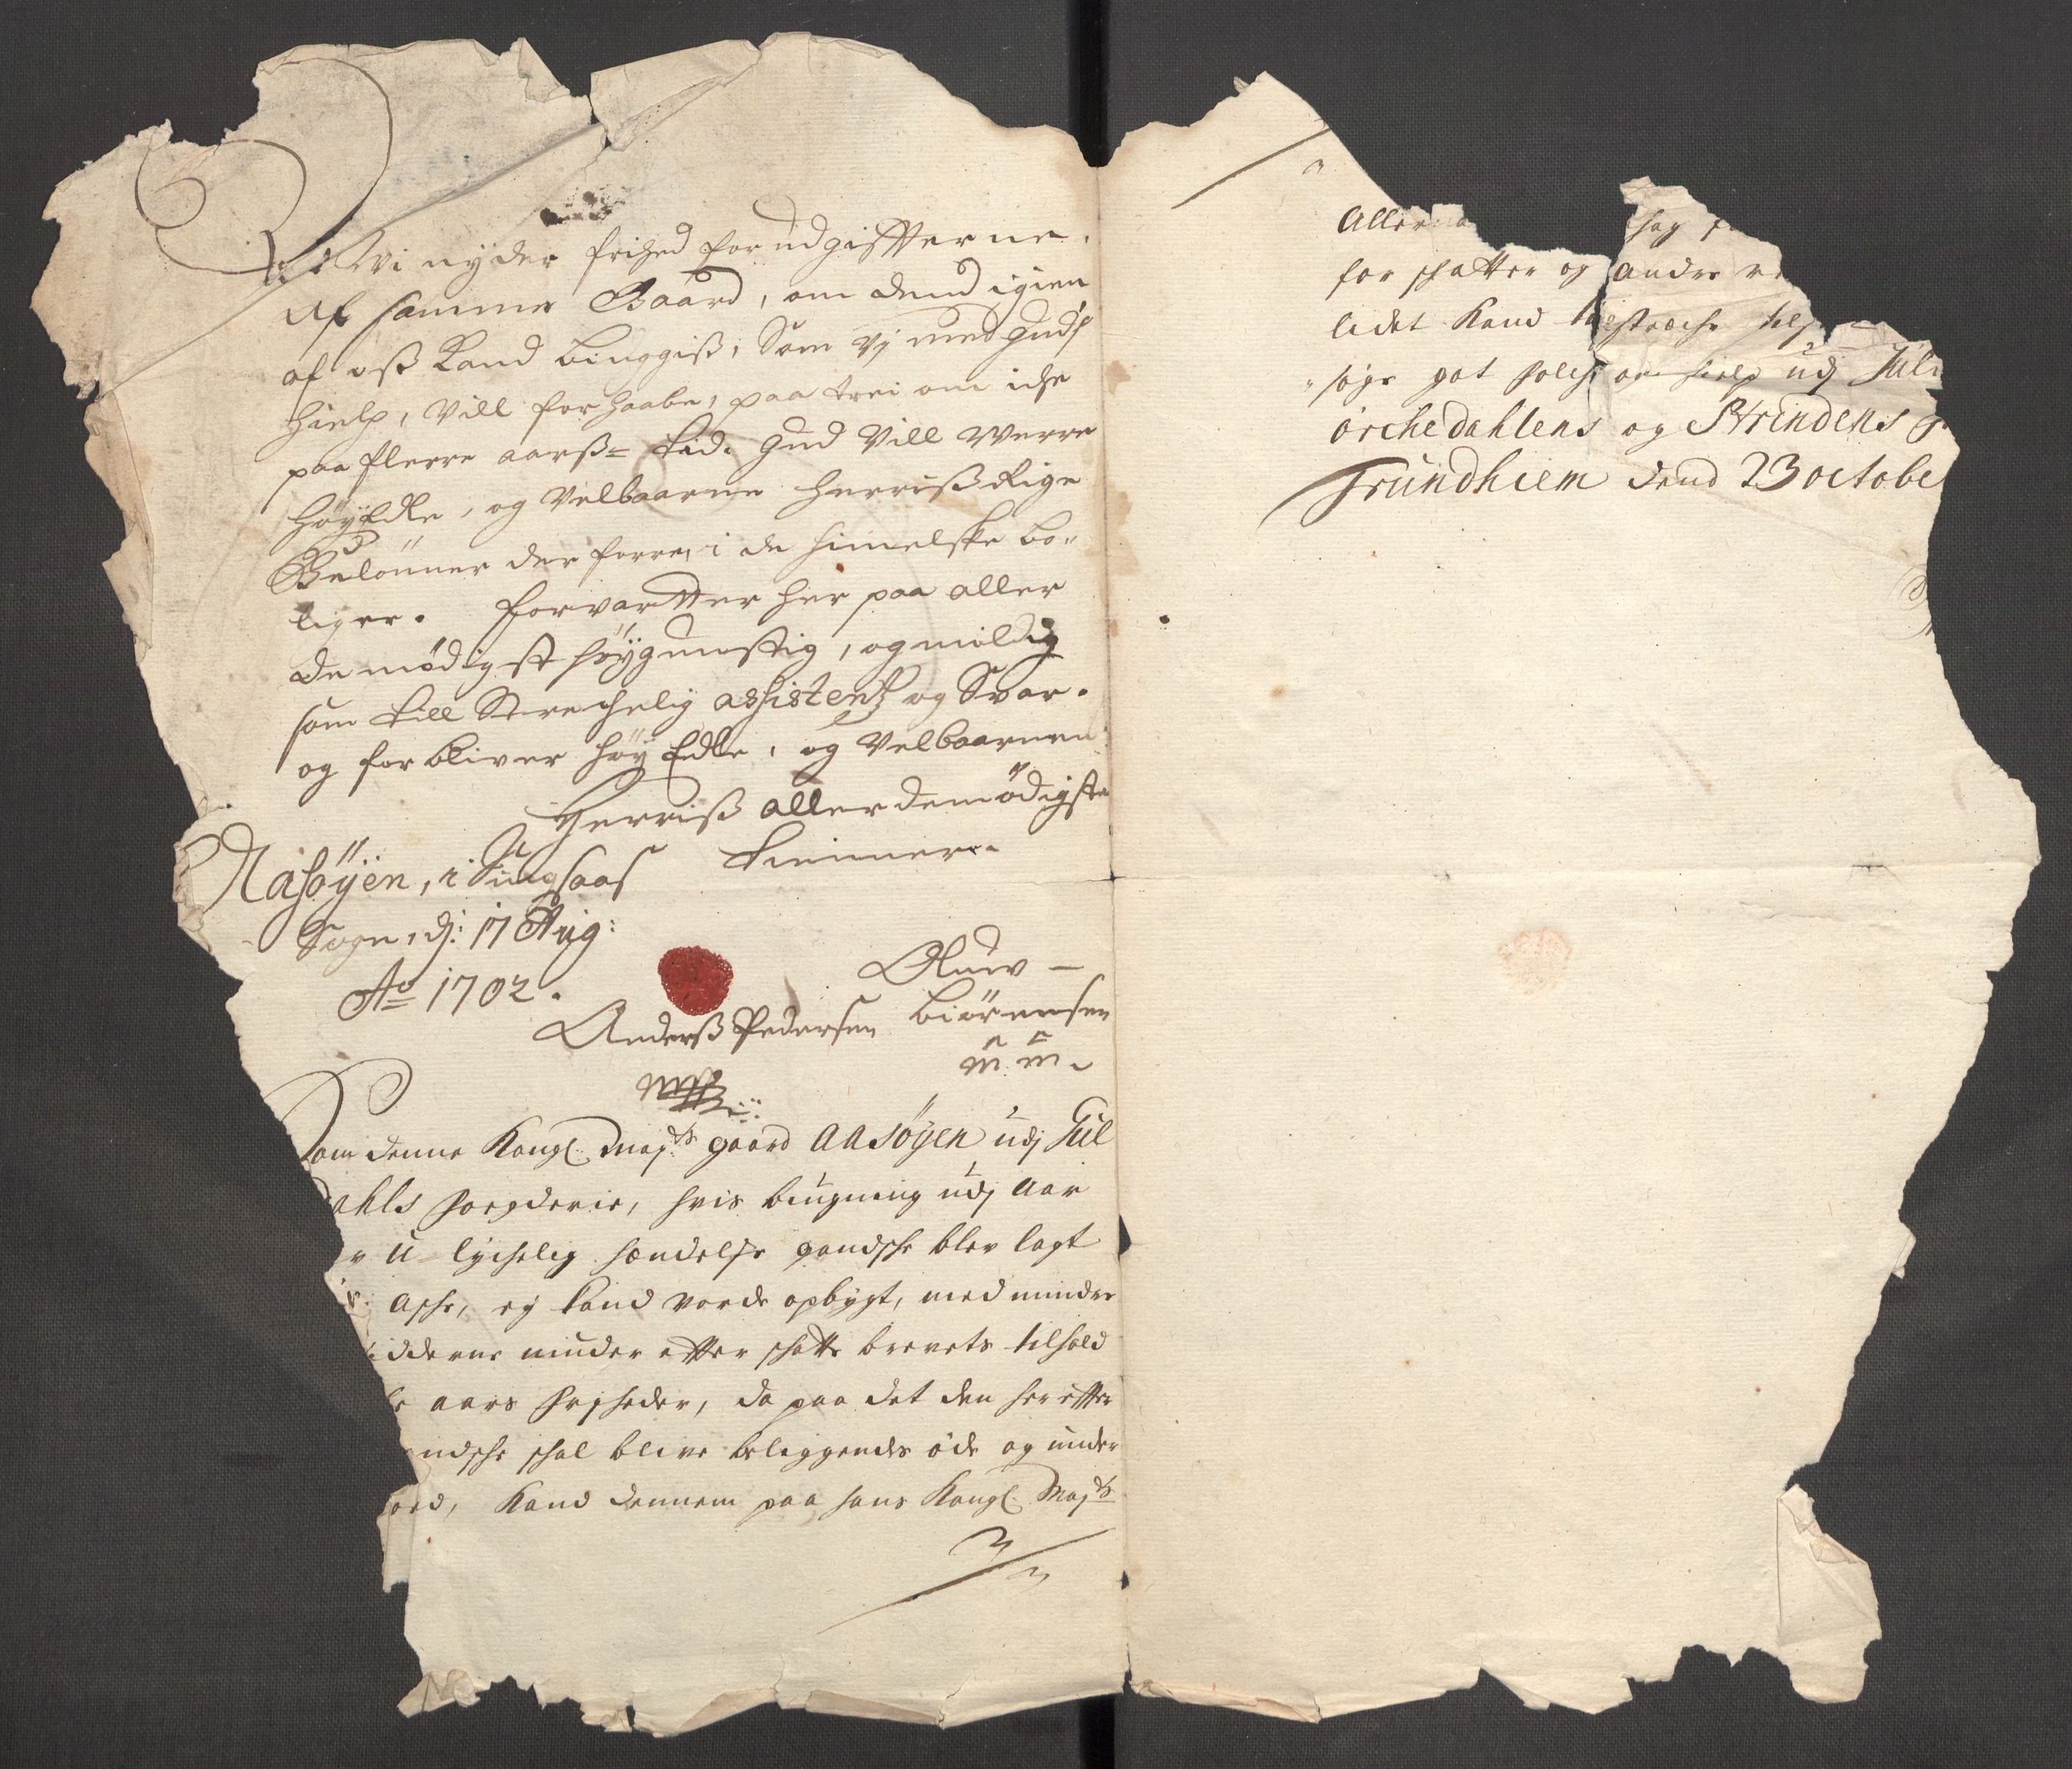 Wi nyder frihed for udgiffterne.
Af samme Gaard, om dend igien
af oss Kand binggiß, Som Vj med Gudß
hielp, Vill forhaabe, paa trei om iche
paa flerre aarß= tid. Gud Vill Werre
HöyEdle, og Velbaarne Herriß Rige
Belönner der forre, i de himelske bo-
liger. Forvartter her paa aller
demödigst höygunstig, og mildig
som till Strechelig assistentz og Svar.
og forbliver Höy Edle, og Velbaarnen
Herriß allerdemödigste
tienner.
Aasöyen, i Singsaas
Sogn, dj: 17 Aug:
Ao 1702.
Oluw -
Anderß Pedersen Biörensen
Som denne Kongl. Mayts gaard Aasöyen udj Gul
ahls fogderie, hvis bugning udj Aar
u-lychelig hendelse gandsche blev lagt
Asche, ej kand vorde opbygt, med mindre
idderne niuder effter schatte brevets tilhold
aars fryheder, da paa det den her effter
ndsche schal blive beliggendes öde og under
Kand dennem paa hans Kongl. Mayts
Aller
for schatter og andre
lidet Kand
söge got folch om hielp udj Gul
örchedahlens og Strindens
Trundhiem dend 23 octobe